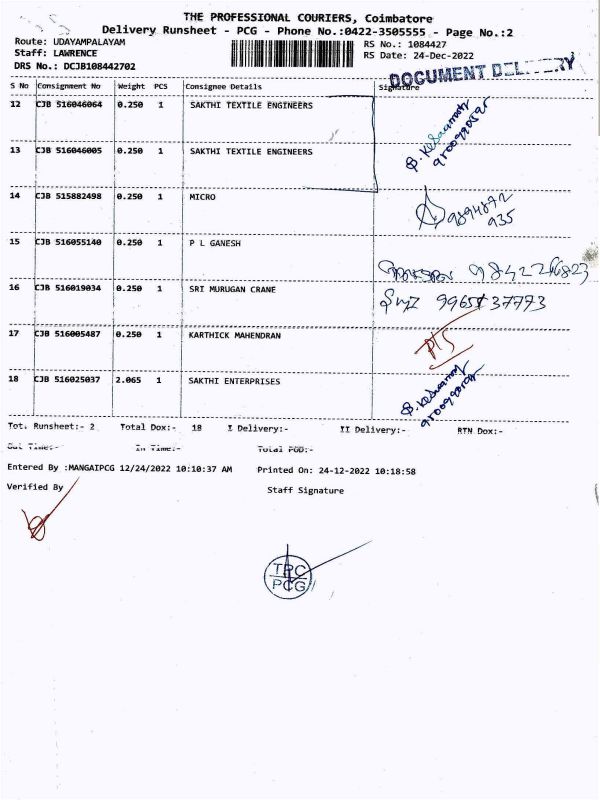 THE PROFESSIONAL COURIERS, Coimbatore
Delivery Runsheet - PCG - Phone No.:0422-3505555 - Page No.:2
Route: UDAYAMPALAYAM
Staff: LAWRENCE
DRS No.: DCJB108442702
RS No.: 1084427
RS Date: 24-Dec-2022
DOCUMENT DELIVERY
S No Consignment No Weight PCS Consignee Details Signature
12 CJB 516046064 0.250 1 SAKTHI TEXTILE ENGINEERS
13 CJB 516046005 0.250 1 SAKTHI TEXTILE ENGINEERS
14 CJB 515882498 0.250 1 MICRO
9894872
935
15 CJB 516055140 0.250 1 P L GANESH
16 CJB 516019034 0.250 1 SRI MURUGAN CRANE
17 CJB 516005487 0.250 1 KARTHICK MAHENDRAN
18 CJB 516025037 2.065 1 SAKTHI ENTERPRISES
Tot. Runsheet:- 2 Total Dox:- 18 I Delivery:- II Delivery:- RTN Dox:-
Out Time:- In Time:- Total POD:-
Entered By :MANGAIPCG 12/24/2022 10:10:37 AM Printed On: 24-12-2022 10:18:58
Verified By Staff Signature
TPC
PCG